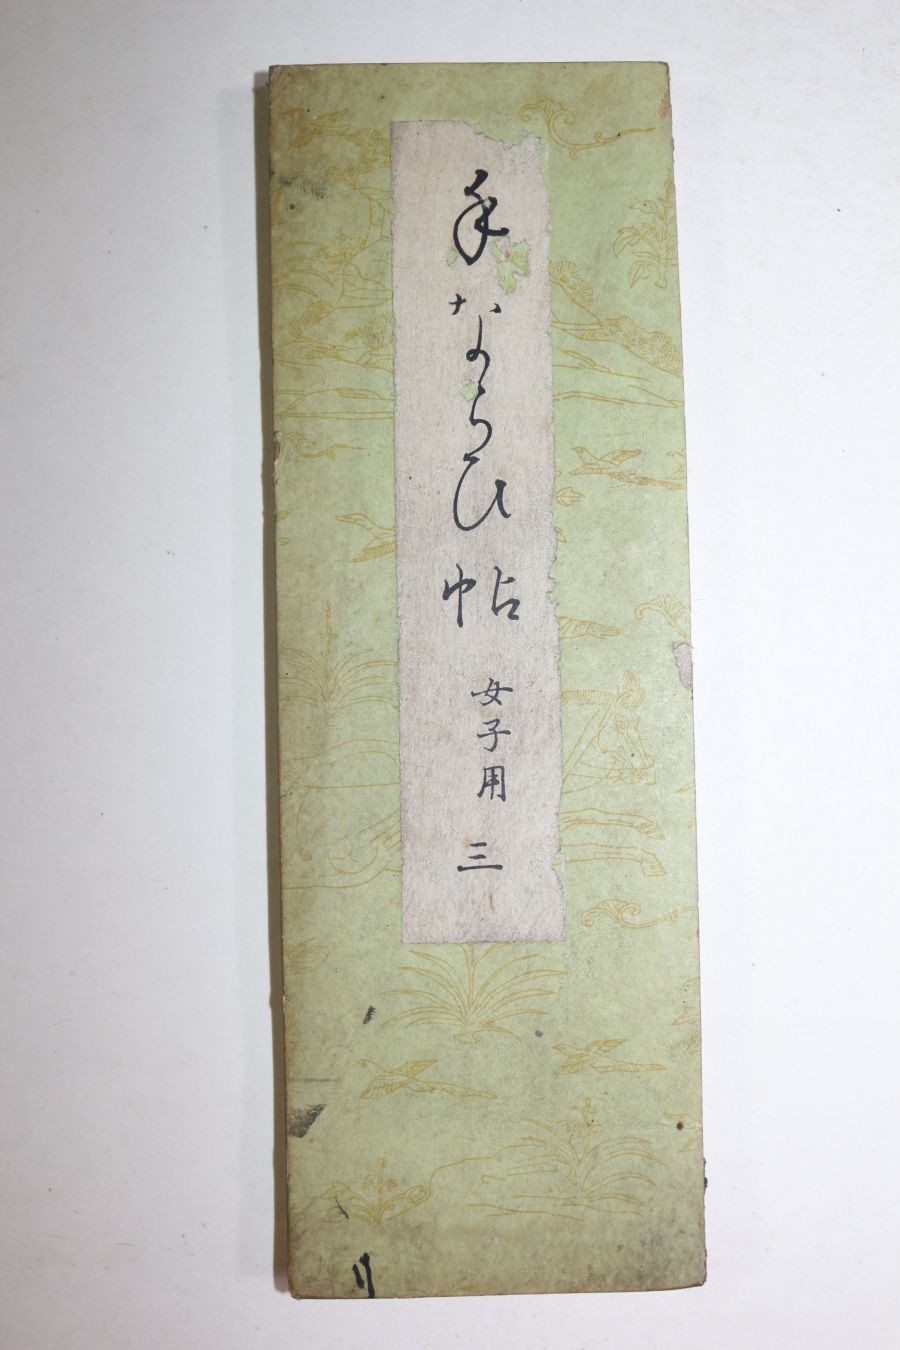 手ならひ帖
女子用
三